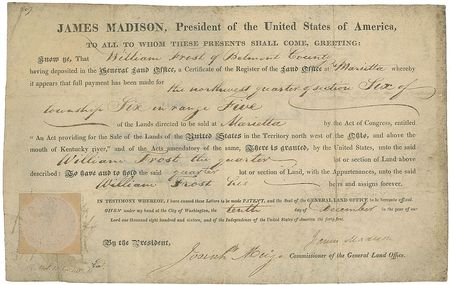 JAMES MADISON, President of the United States of America,
TO ALL TO WHOM THESE PRESENTS SHALL COME, GREETING:
Know ye, That William Frost of Belmont County
having deposited in the General Land Office, a Certificate of the Register of the Land Office at Marietta whereby
it appears that full payment has been made for the northwest quarter of section Six of
township Six in range Five
of the Lands directed to be sold at Marietta by the Act of Congress, entitled
"An Act providing for the Sale of the Lands of the United States in the Territory north west of the Ohio, and above the
mouth of Kentucky river," and of the Acts amendatory of the same, There is granted, by the United States, unto the said
William Frost the quarter lot or section of Land above
described: To have and to hold the said quarter lot or section of Land, with the Appurtenances, unto the said
William Frost his heirs and assigns forever.
IN TESTIMONY WHEREOF, I have caused these Letters to be made PATENT, and the Seal of the GENERAL LAND OFFICE to be hereunto affixed.
GIVEN under my hand at the City of Washington, the tenth day of December in the year of our
Lord one thousand eight hundred and sixteen, and of the Independence of the United States of America the forty-first.
By the President, James Madison
Josiah Meigs Commissioner of the General Land Office.